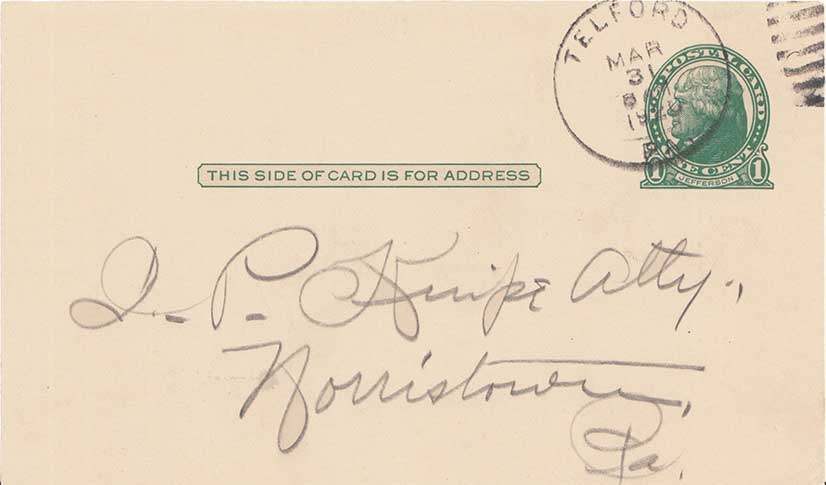 TELFORD
MAR
31
U.S. POSTAL CARD
ONE CENT
1 JEFFERSON 1
THIS SIDE OF CARD IS FOR ADDRESS
I. P. Knipe Atty.,
Norristown,
Pa.